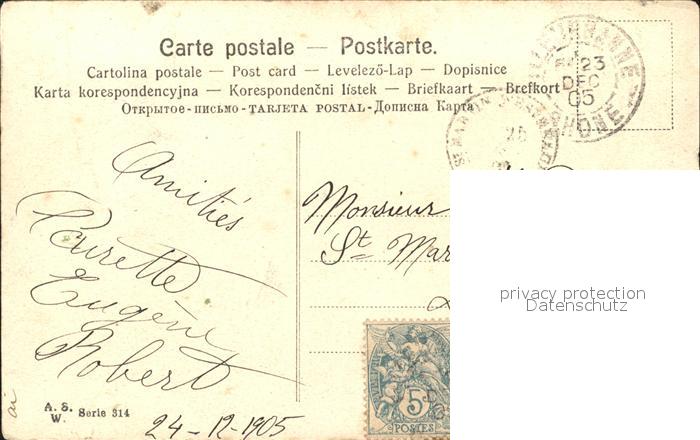 Carte postale — Postkarte.
Cartolina postale — Post card — Levelező-Lap — Dopisnice
Karta korespondencyjna — Korespondenční lístek — Briefkaart — Brefkort
Открытое-письмо-TARJETA POSTAL-Дописна Карта
23
DEC
05
RHONE
ST MARTIN
25
Amitiés
Laurette
Eugène
Robert
Monsieur
St Mar
privacy protection
Datenschutz
5c
POSTES
A. S.
W. Serie 314
24-12-1905